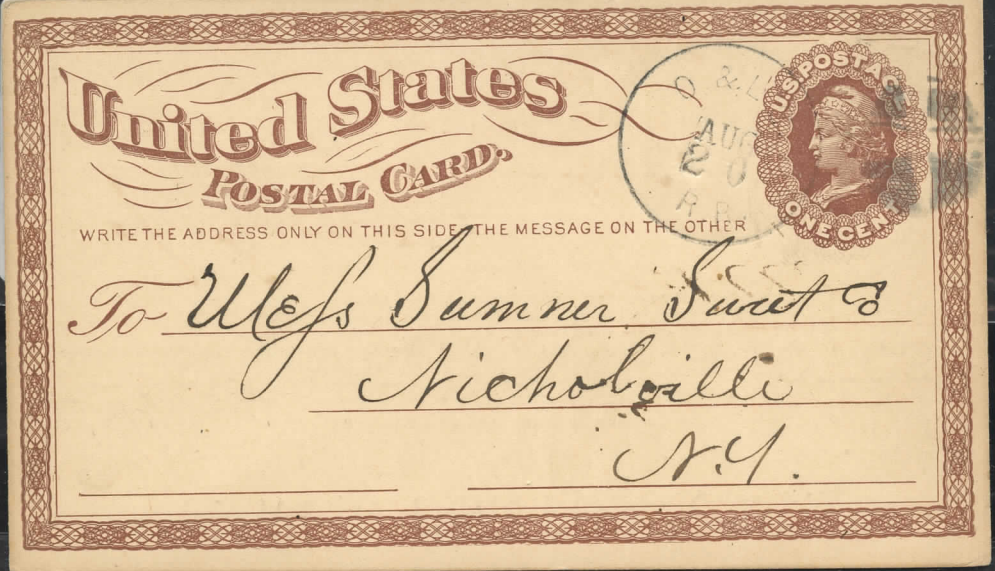 United States
POSTAL CARD.
WRITE THE ADDRESS ONLY ON THIS SIDE - THE MESSAGE ON THE OTHER
O & L
AUG
20
R.R.
U.S. POSTAGE
ONE CENT
To Mess Sumner Sweet &
Nicholville
N.Y.